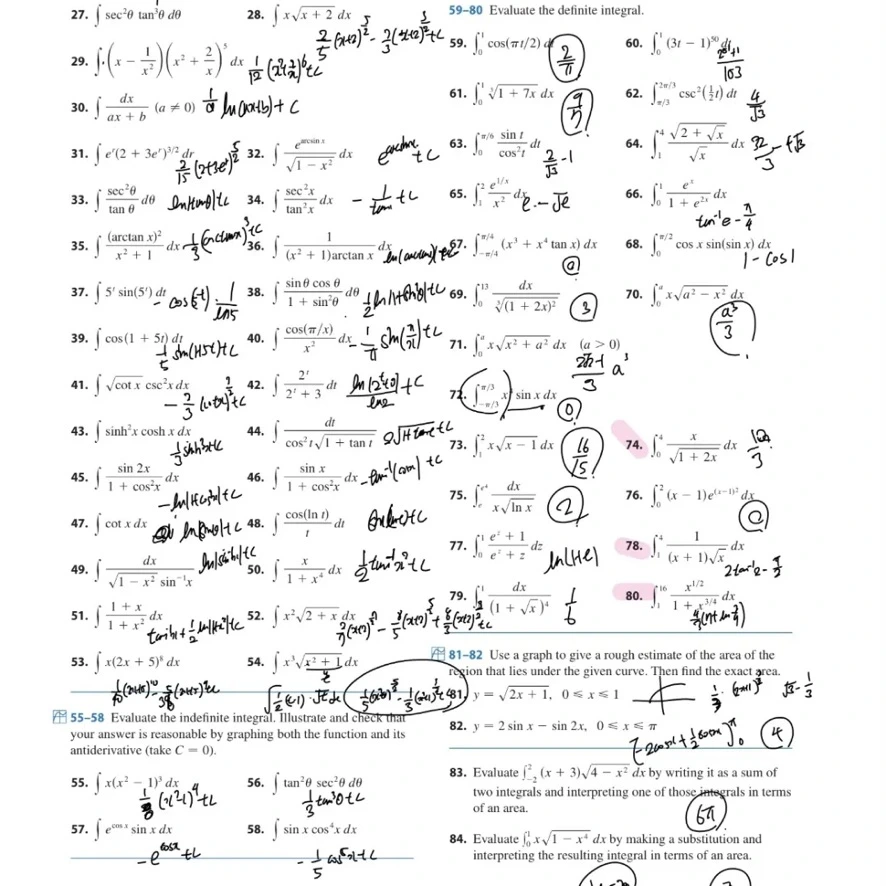 27. ∫ sec²θ tan³θ dθ
28. ∫ x√(x + 2) dx
2/5 (x+2)^(5/2) - 2/3 (x+2)^(3/2) + C
29. ∫ (x − 1/x²)(x² + 2/x)⁵ dx
30. ∫ dx/(ax + b) (a ≠ 0)
ln(ax+b) + C
31. ∫ eʳ(2 + 3eʳ)^(3/2) dr
2/15 (2+3eʳ)^(5/2)
32. ∫ e^(arcsin x)/√(1 − x²) dx
33. ∫ sec²θ/tan θ dθ
ln|tanθ|+C
34. ∫ sec²x/tan²x dx
- 1/tanx + C
35. ∫ (arctan x)²/(x² + 1) dx
1/3 (arctanx)³ +C
36. ∫ 1/((x² + 1)arctan x) dx
37. ∫ 5ᵗ sin(5ᵗ) dt
38. ∫ sin θ cos θ/(1 + sin²θ) dθ
39. ∫ cos(1 + 5t) dt
1/5 sin(1+5t)+C
40. ∫ cos(π/x)/x² dx
- 1/π sin(π/x)+C
41. ∫ √(cot x) csc²x dx
- 2/3 (cotx)^(3/2) +C
42. ∫ 2ᵗ/(2ᵗ + 3) dt
43. ∫ sinh²x cosh x dx
1/3 sinh³x+C
44. ∫ dt/(cos²t√(1 + tan t))
2√(1+tant)+C
45. ∫ sin 2x/(1 + cos²x) dx
-ln|1+cos²x|+C
46. ∫ sin x/(1 + cos²x) dx
-tan⁻¹(cosx) +C
47. ∫ cot x dx
ln|sinx|+C
48. ∫ cos(ln t)/t dt
49. ∫ dx/(√(1 − x²) sin⁻¹x)
50. ∫ x/(1 + x⁴) dx
1/2 tan⁻¹x²+C
51. ∫ (1 + x)/(1 + x²) dx
tan⁻¹x+1/2 ln|1+x²|+C
52. ∫ x²√(2 + x) dx
53. ∫ x(2x + 5)⁸ dx
54. ∫ x³√(x² + 1) dx
55–58 Evaluate the indefinite integral. Illustrate and check that
your answer is reasonable by graphing both the function and its
antiderivative (take C = 0).
55. ∫ x(x² − 1)³ dx
1/8 (x²-1)⁴+C
56. ∫ tan²θ sec²θ dθ
1/3 tan³θ+C
57. ∫ e^(cos x) sin x dx
-e^(cosx) +C
58. ∫ sin x cos⁴x dx
- 1/5 cos⁵x+C
59–80 Evaluate the definite integral.
59. ∫₀¹ cos(πt/2) dt
2/π
60. ∫₀¹ (3t − 1)⁵⁰ dt
61. ∫₀¹ ∛(1 + 7x) dx
62. ∫_(π/3)^(2π/3) csc²(½t) dt
4/√3
63. ∫₀^(π/6) sin t/cos²t dt
2/√3 -1
64. ∫₁⁴ √(2 + √x)/√x dx
65. ∫₁² e^(1/x)/x² dx
e-√e
66. ∫₀¹ eˣ/(1 + e²ˣ) dx
tan⁻¹e - π/4
67. ∫_(−π/4)^(π/4) (x³ + x⁴ tan x) dx
0
68. ∫₀^(π/2) cos x sin(sin x) dx
1-cos1
69. ∫₀¹³ dx/∛((1 + 2x)²)
3
70. ∫₀ᵃ x√(a² − x²) dx
a³/3
71. ∫₀ᵃ x√(x² + a²) dx (a > 0)
(2√2-1)/3 a³
72. ∫_(−π/3)^(π/3) x⁴ sin x dx
0
73. ∫₁² x√(x − 1) dx
16/15
74. ∫₀⁴ x/√(1 + 2x) dx
75. ∫ₑ^(e⁴) dx/(x√(ln x))
2
76. ∫₀² (x − 1)e^((x−1)²) dx
0
77. ∫₀¹ (eᶻ + 1)/(eᶻ + z) dz
ln(1+e)
78. ∫₁⁴ 1/((x + 1)√x) dx
2tan⁻¹2-π/2
79. ∫₀¹ dx/(1 + √x)⁴
1/6
80. ∫₁¹⁶ x^(1/2)/(1 + x^(3/4)) dx
81–82 Use a graph to give a rough estimate of the area of the
region that lies under the given curve. Then find the exact area.
81. y = √(2x + 1), 0 ≤ x ≤ 1
√3-1/3
82. y = 2 sin x − sin 2x, 0 ≤ x ≤ π
4
83. Evaluate ∫₋₂² (x + 3)√(4 − x²) dx by writing it as a sum of
two integrals and interpreting one of those integrals in terms
of an area.
6π
84. Evaluate ∫₀¹ x√(1 − x⁴) dx by making a substitution and
interpreting the resulting integral in terms of an area.